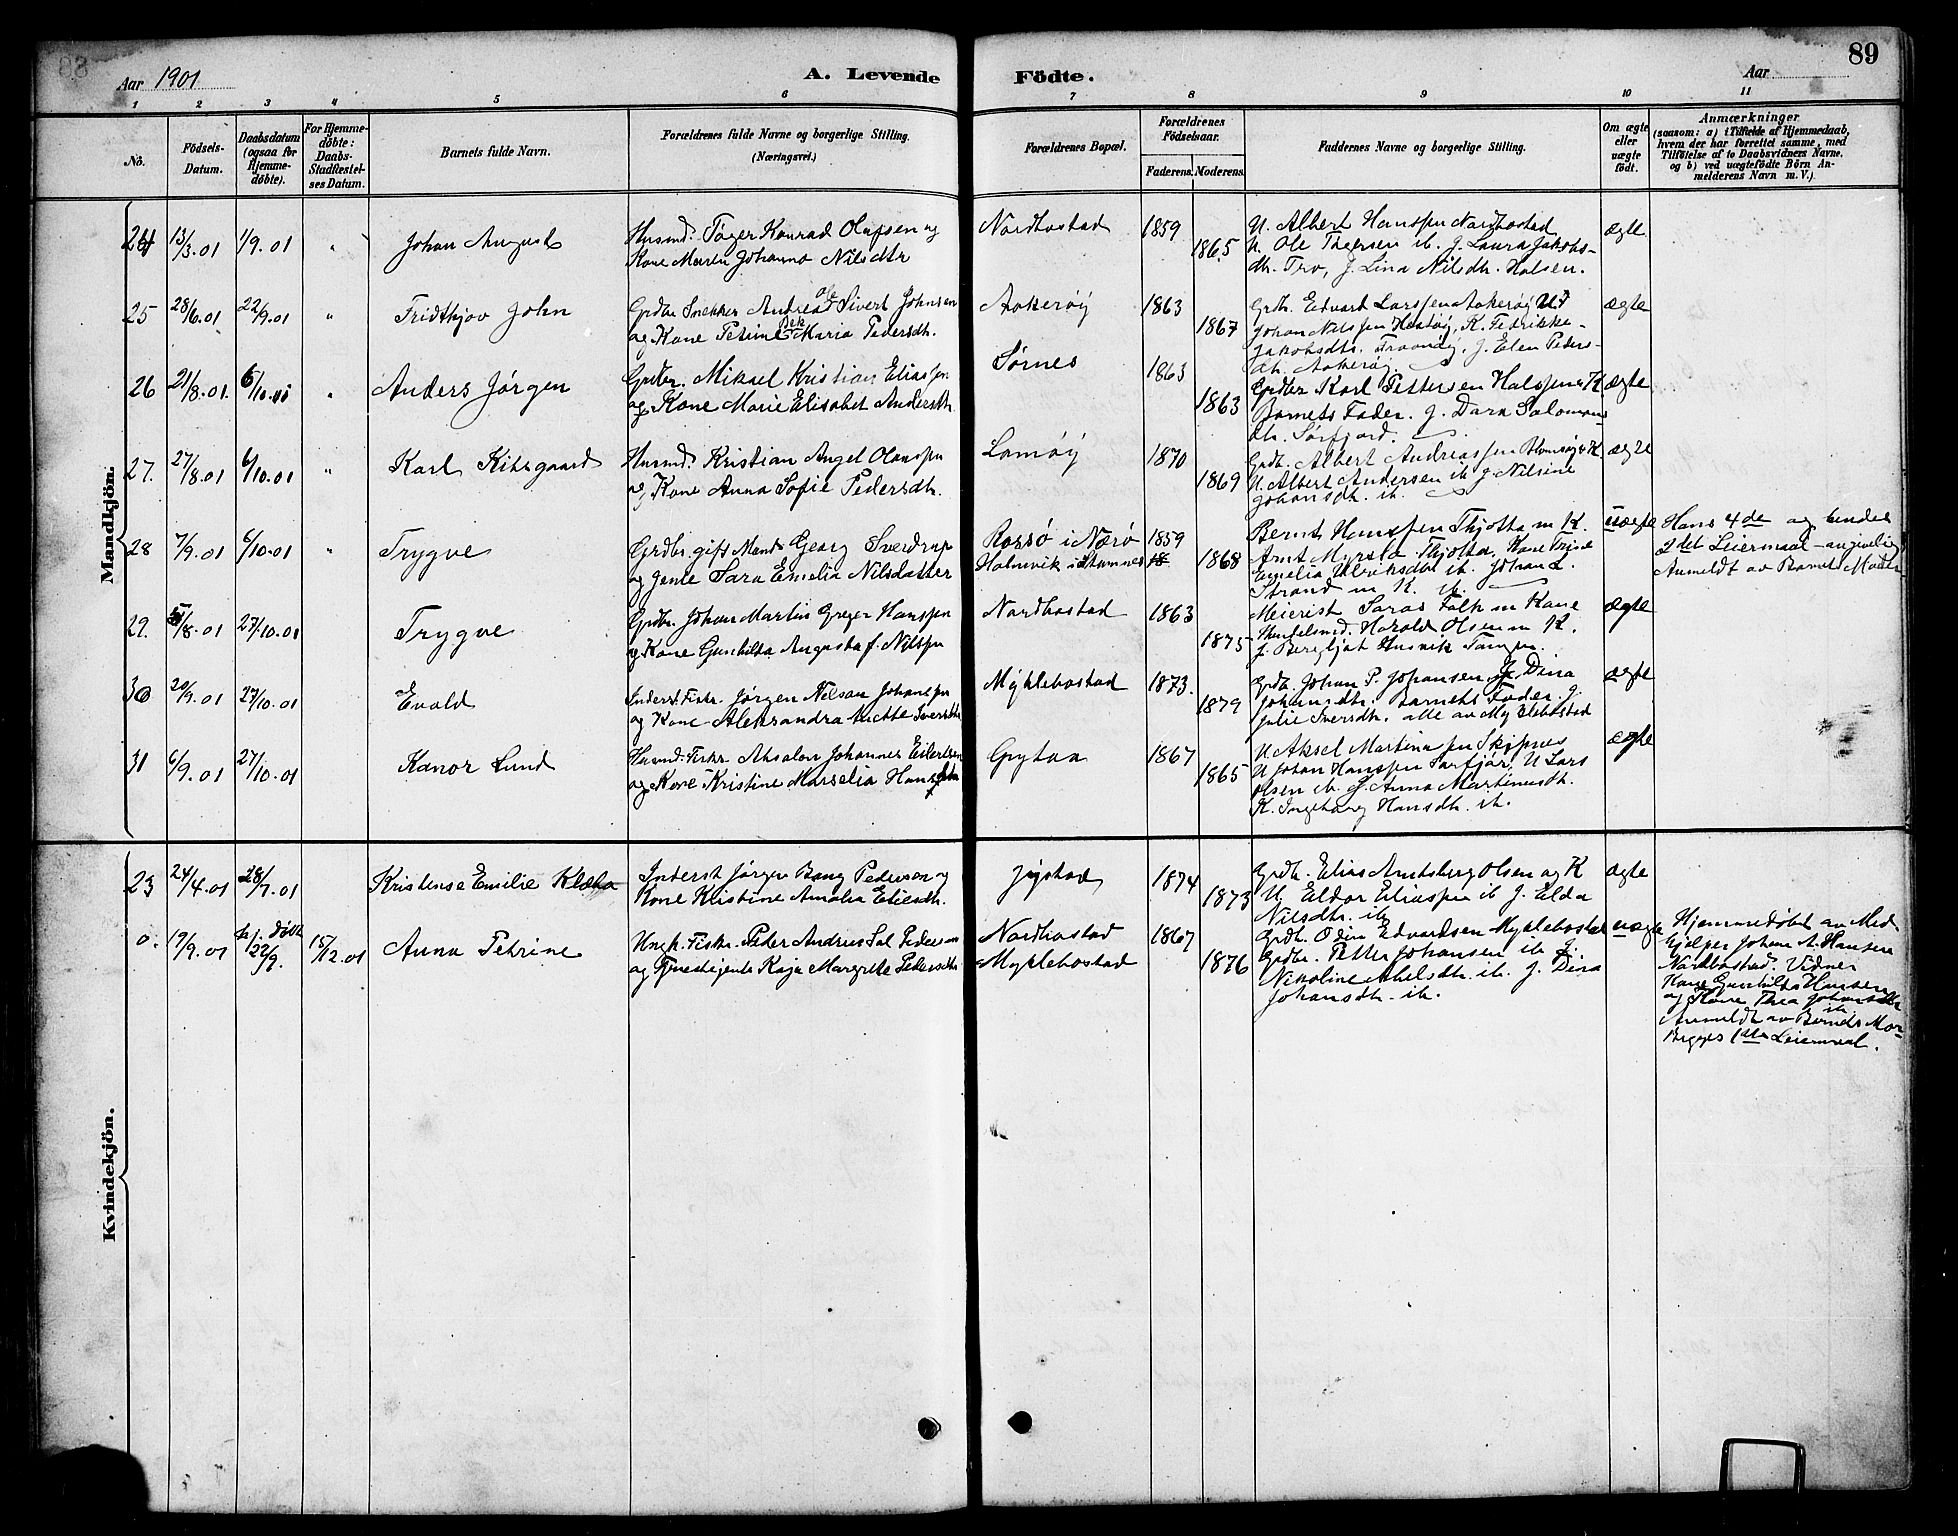 88
89
Aar 1901
A. Levende Födte.
Aar
1 2 3 4 5 6 7 8 9 10 11
No.
Födsels-Datum.
Daabsdatum (ogsaa for Hjemmedöbte).
For Hjemmedöbte: Daabs-Stadfæstelses Datum.
Barnets fulde Navn.
Forældrenes fulde Navne og borgerlige Stilling.
(Næringsvei.)
Forældrenes Bopæl.
Forældrenes Födselsaar.
Faderens. Moderens.
Faddernes Navne og borgerlige Stilling.
Om ægte eller uægte födt.
Anmærkninger
(saasom: a) i Tilfælde af Hjemmedaab,
hvem der har forrettet samme, med
Tilföielse af to Daabsvidners Navne,
og b) ved uægtefödte Börn Anmelderens Navn m. V.).
Mandkjön.
24 13/3.01 1/9.01 " Johan August
Husmd. Tøger Konrad Olufsen og
Kone Maren Johanna Nilsdtr
Nordbostad 1859 1865
U. Albert Hanssen Nordbostad
U. Ole Thoersen ib. J. Laura Jakobs-
dtr. Tro, J. Lina Nilsdtr. Halsen.
ægte
25 28/6.01 22/9.01 " Fridthjov John
Grdbr Snekker Andreas Ole Sivert Johnsen
og Kone Petrine Bek Maria Pedersdtr.
Aakerøy 1863 1867
Grdb. Edvard Larssen Aakerøy U
Johan Nilssen Hestøy, K. Fedrikke
Jakobsdtr. J. Elen Peders-
dtr. Aakerøy.
ægte
26 21/8.01. 6/10.01 " Anders Jørgen
Grdbr. Mikael Kristian Eliassen
og Kone Marie Elisabet Andersdtr.
Sørnes 1863 1863
Grdbr Karl Pettersen Halssen K.
Barnets Fader. J. Dara Salomons
dtr. Sørfjord.
ægte
27. 27/8.01 6/10.01 " Karl Kitsgaard
Husmd. Kristian Angel Olaussen
og Kone Anna Sofie Pedersdtr.
Lamøy 1870 1869
Grdb. Albert Andreassen Blomsøy K
U. Albert Andersen ib J. Nilsine
Johansdtr. ib.
ægte
28 7/9.01 6/10.01 " Trygve
Grdbr. gift Mand Georg Sverdrup
og Jente Sara Emelia Nilsdatter
Rossø i Nærø
Holmvik i Stamnes
1859 18 1868
Bernt Hanssen Thjøtta m K.
Arnt Myrslo Thjøtta. Kone Trine
Emelia Ulriksdtr ib. Johan L.
Strand m K. ib.
uægte
Hans 4de og hendes
2det Leiermaal angivelig
Anmeldt av Barnets Moder
29. 5/8.01 27/10.01 Trygve
Grdbr. Johan Martin Greger Hanssen
og Kone Gunhilda Augusta f. Nilssen
Nordbostad 1863 1875
Meierist Saras Falk m Kone
Handelsmd. Harald Olsen m K.
J. Bergljot Husvik Tangen.
ægte
30 20/9.01 27/10.01 Evald
Inderst Fisker. Jørgen Nelson Johanssen
og Kone Aleksandra Mette Iversdtr.
Myklebostad 1873. 1879
Grdb. Johan P. Johansen J. Dina
Johansdtr. Barnets Fader. J.
Julie Iversdtr. alle av Myklebostad
ægte
31 6/9.01 27/10.01 Kanor Lund
Husmd. Fisker Absalon Johannes Eilertsen
og Kone Kristine Marselia Hansdtr
Grytaa 1867 1865
U. Aksel Martinussen Skipnes
U Johan Hanssen Sørfjor, U Lars
Olsen ib. J. Anna Martinusdtr.
K. Ingeborg Hansdtr. ib.
ægte
Kvindekjön.
23 24/4.01 28/7.01 Kristense Emilie Klæbo
Inderst Jørgen Bang Pedersen og
Kone Kristine Amalia Eliesdtr.
Jystad 1874 1873
Grdb. Elias Amtsberg Olsen og K
U. Eldor Eliassen ib J. Elda
Nilsdtr. ib
ægte
0. 19/9.01 hj. Døbt 22/9. 15/12.01 Anna Petrine
Ungk. Fisker. Peder Andreas Sol Pedersen
og Tjenestejente Kaja Margrete Pedersdtr
Nordbostad
Myklebostad
1867 1876
Grdb. Odin Edvardsen Myklebostad
Grdb. Petter Johansen ib J.
Nikoline Abelsdtr. ib. J. Dina
Johansdtr. ib.
uægte
Hjemmedøbt av Med
hjelper Johan A. Hansen
Nordbostad. Vidner
Kone Gunhilda Hansen
og Kone Thea Johansdtr
ib
Anmeldt av Barnets Mor
Begges 1ste Leiermaal.